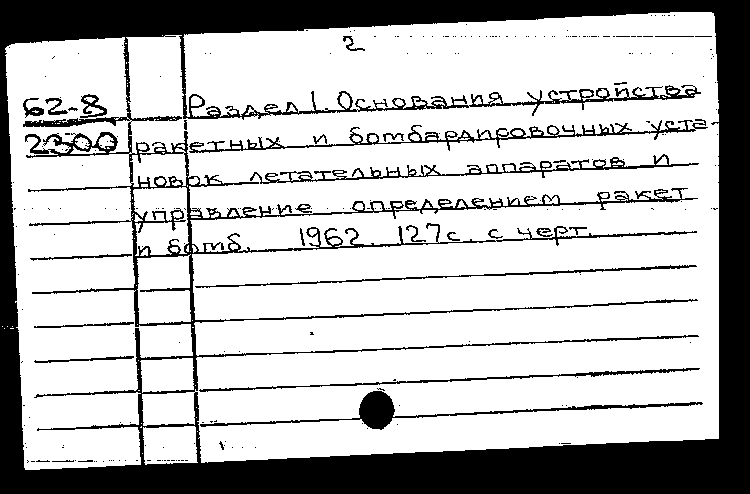 2
62-8 Раздел 1. Основания устройства
2300 ракетных и бомбардировочных уста-
новок летательных аппаратов и
управление определением ракет
и бомб. 1962. 127с. с черт.